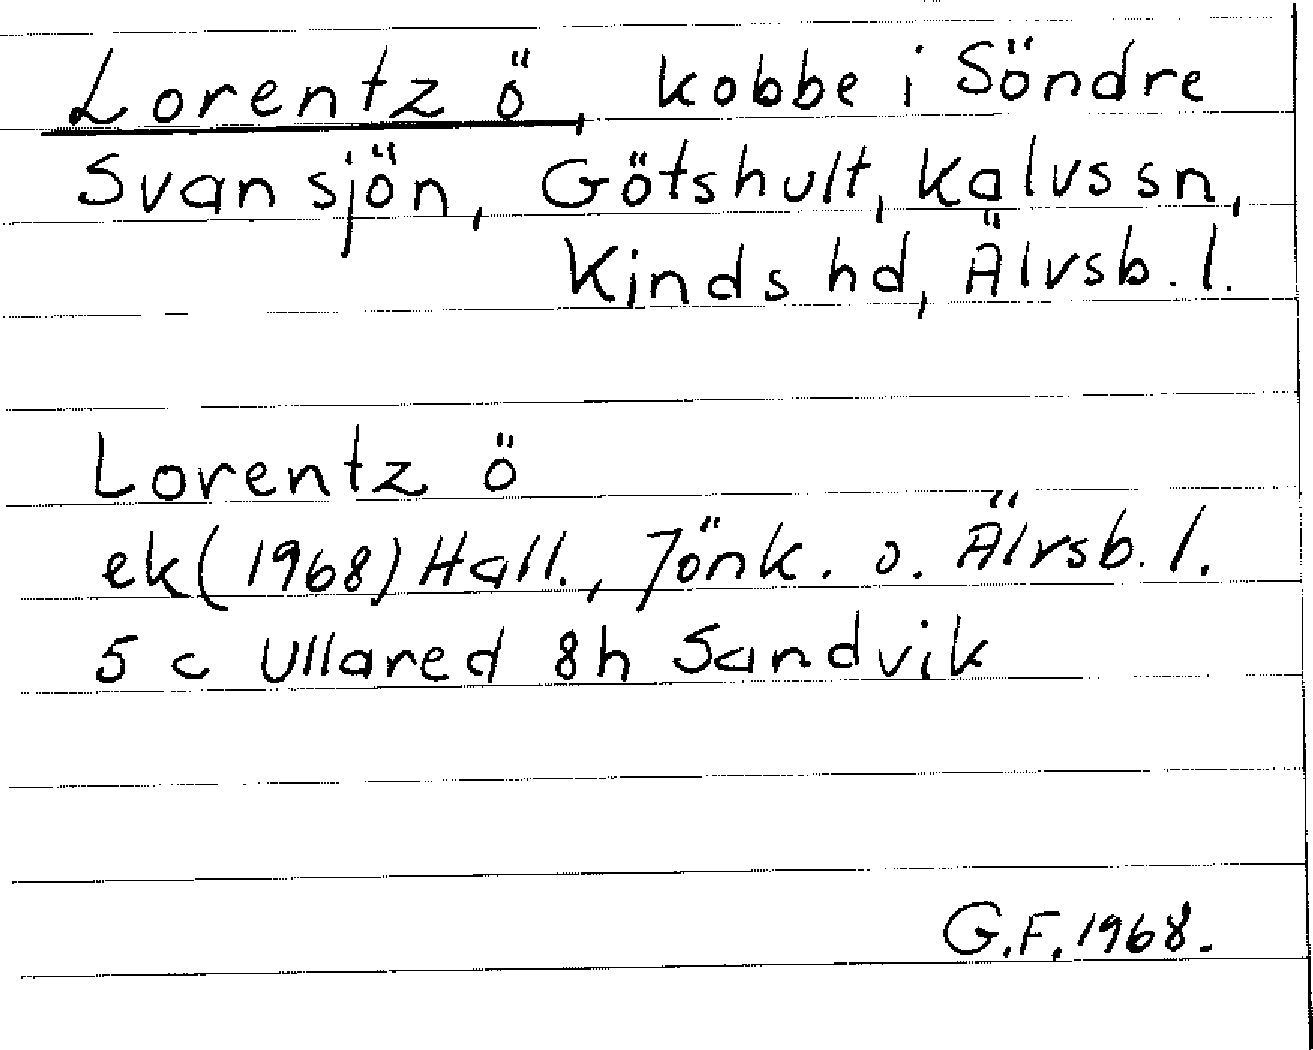 Lorentz ö, kobbe i Söndre
Svansjön, Götshult, Kalvs sn,
Kinds hd, Älvsb. l.
Lorentz ö
ek (1968) Hall., Jönk. o. Älvsb. l.
5 c Ullared 8h Sandvik
G.F. 1968.